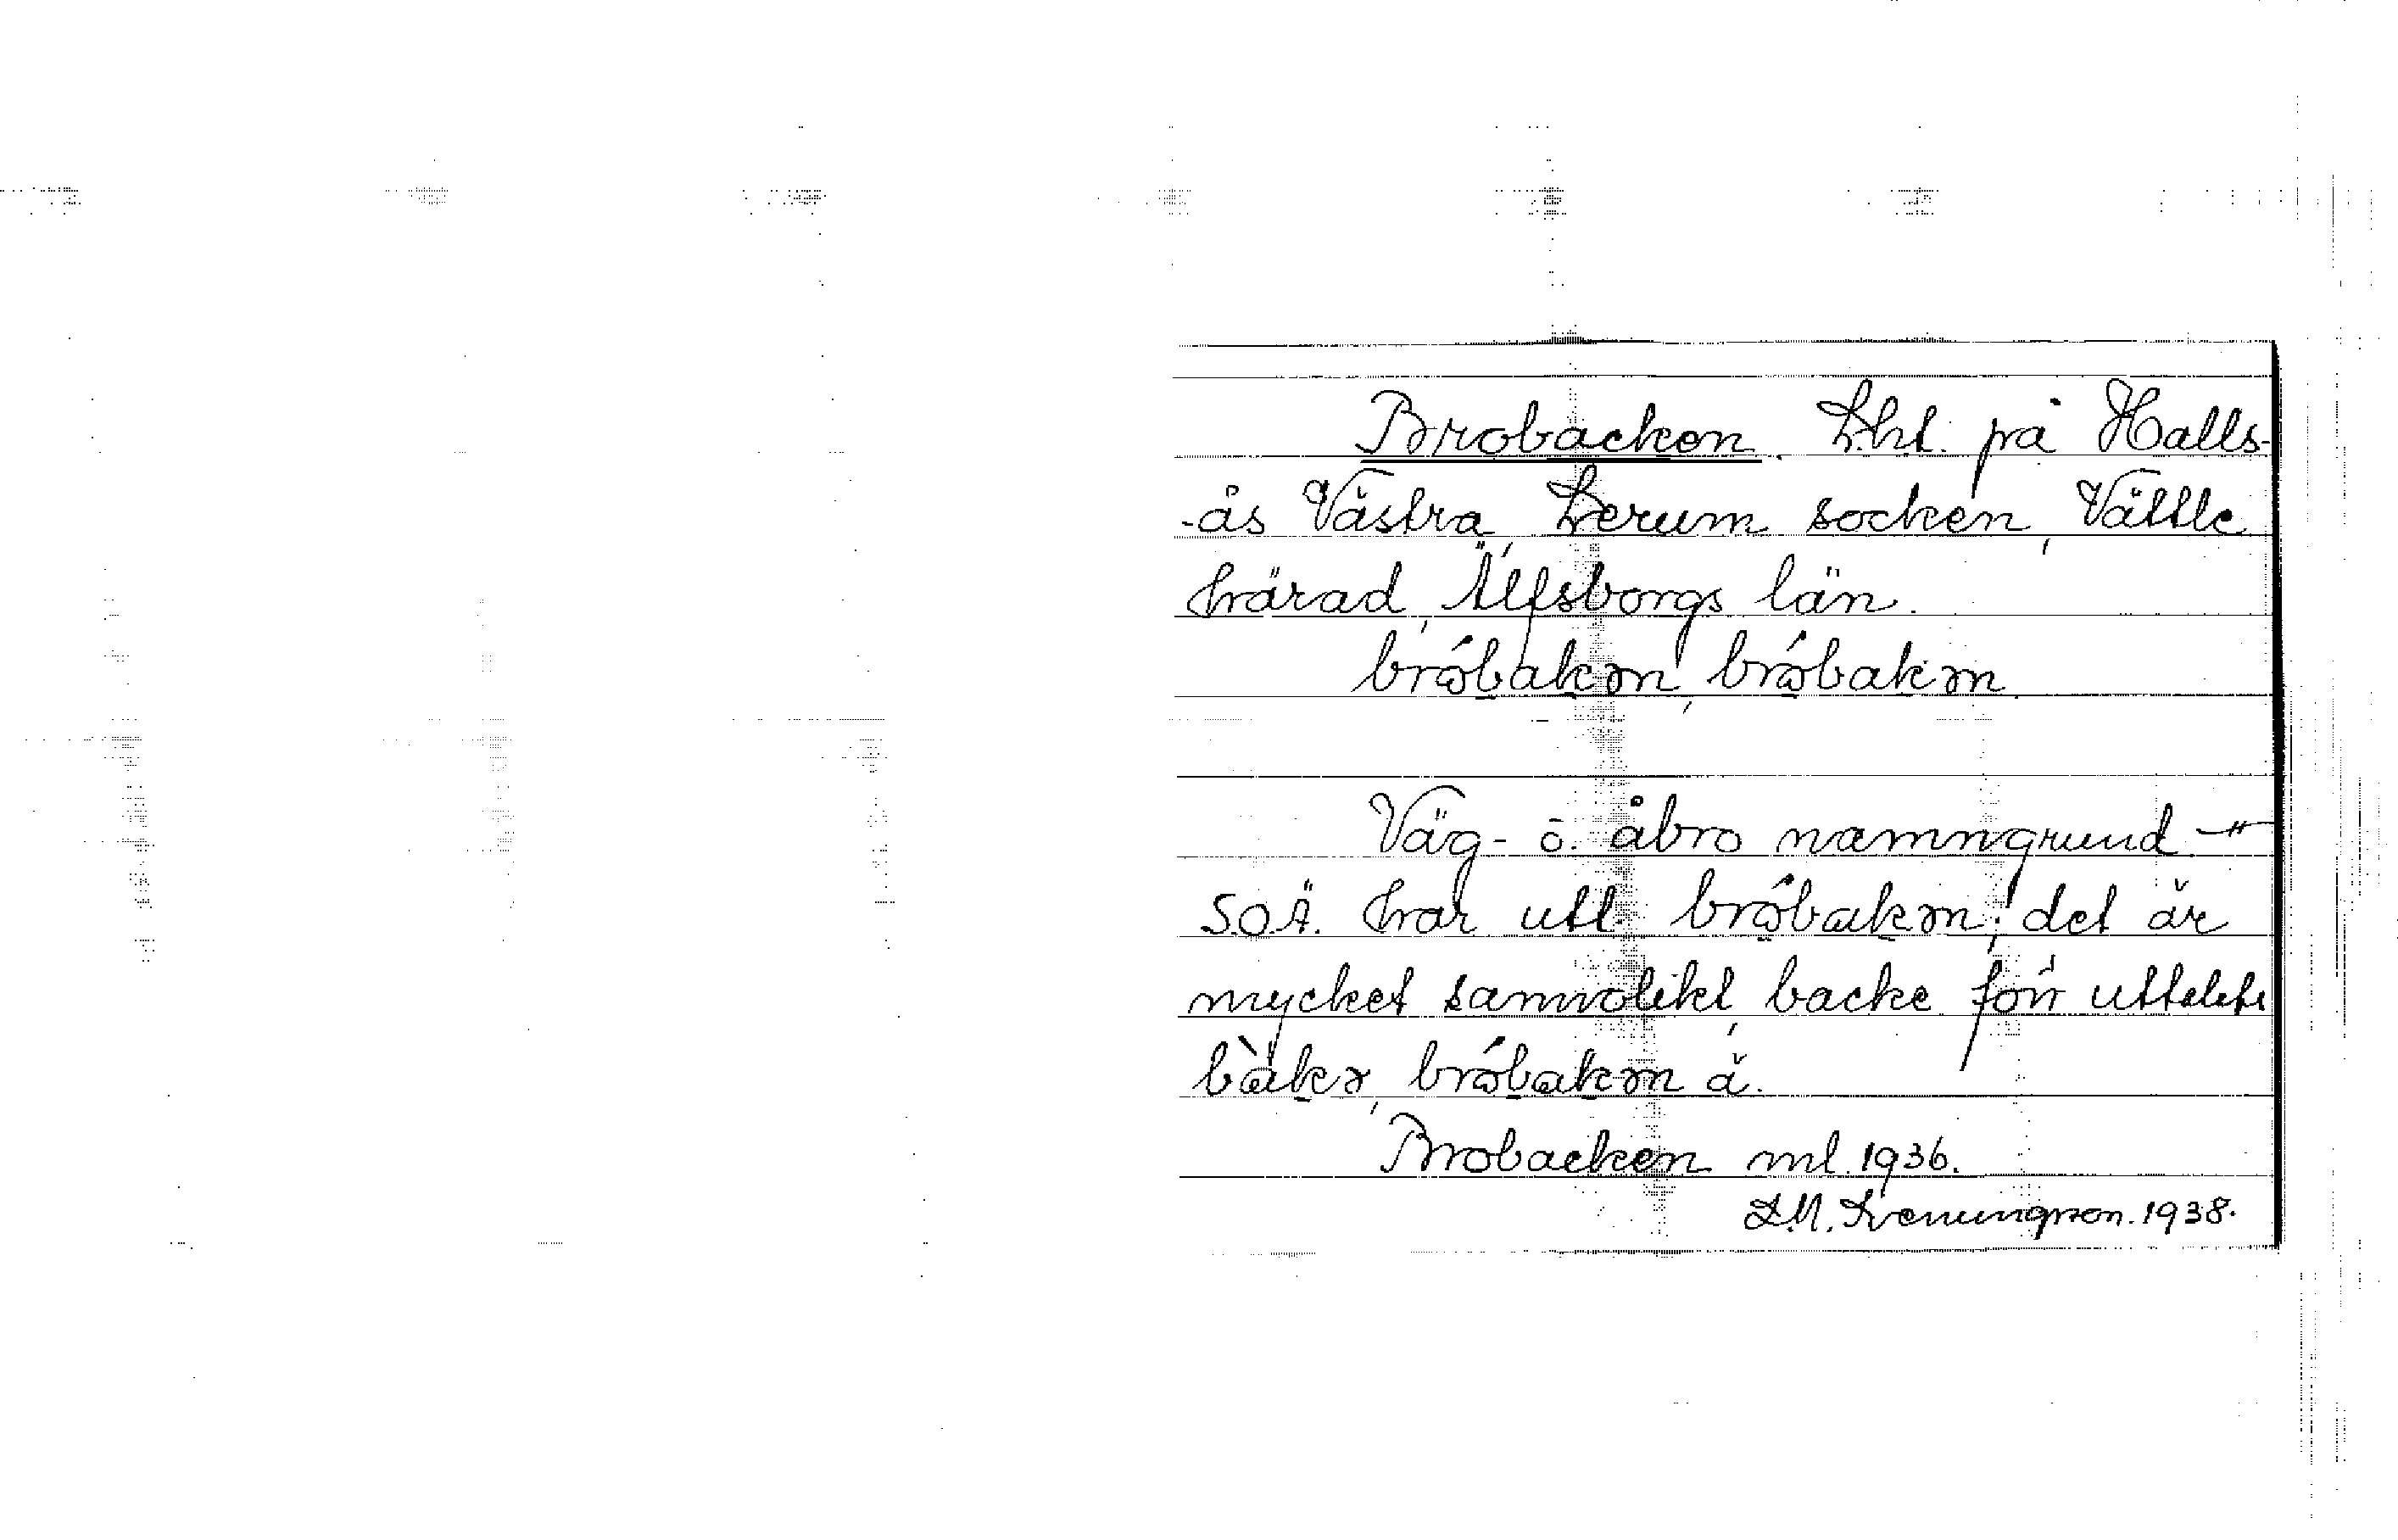 Brobacken. Lht. på Halls-
-ås Västra, Lerum socken, Vättle
härad, Älfsborgs län.
bróbakən, bróbakən.
Väg- o. åbro namngrund. –"–
S.O.Ä. har utt. bróbakən; det är
mycket sannolikt, backe förr uttalats
bàkə, bróbakən ä.
Brobacken ml. 1936.
1938.